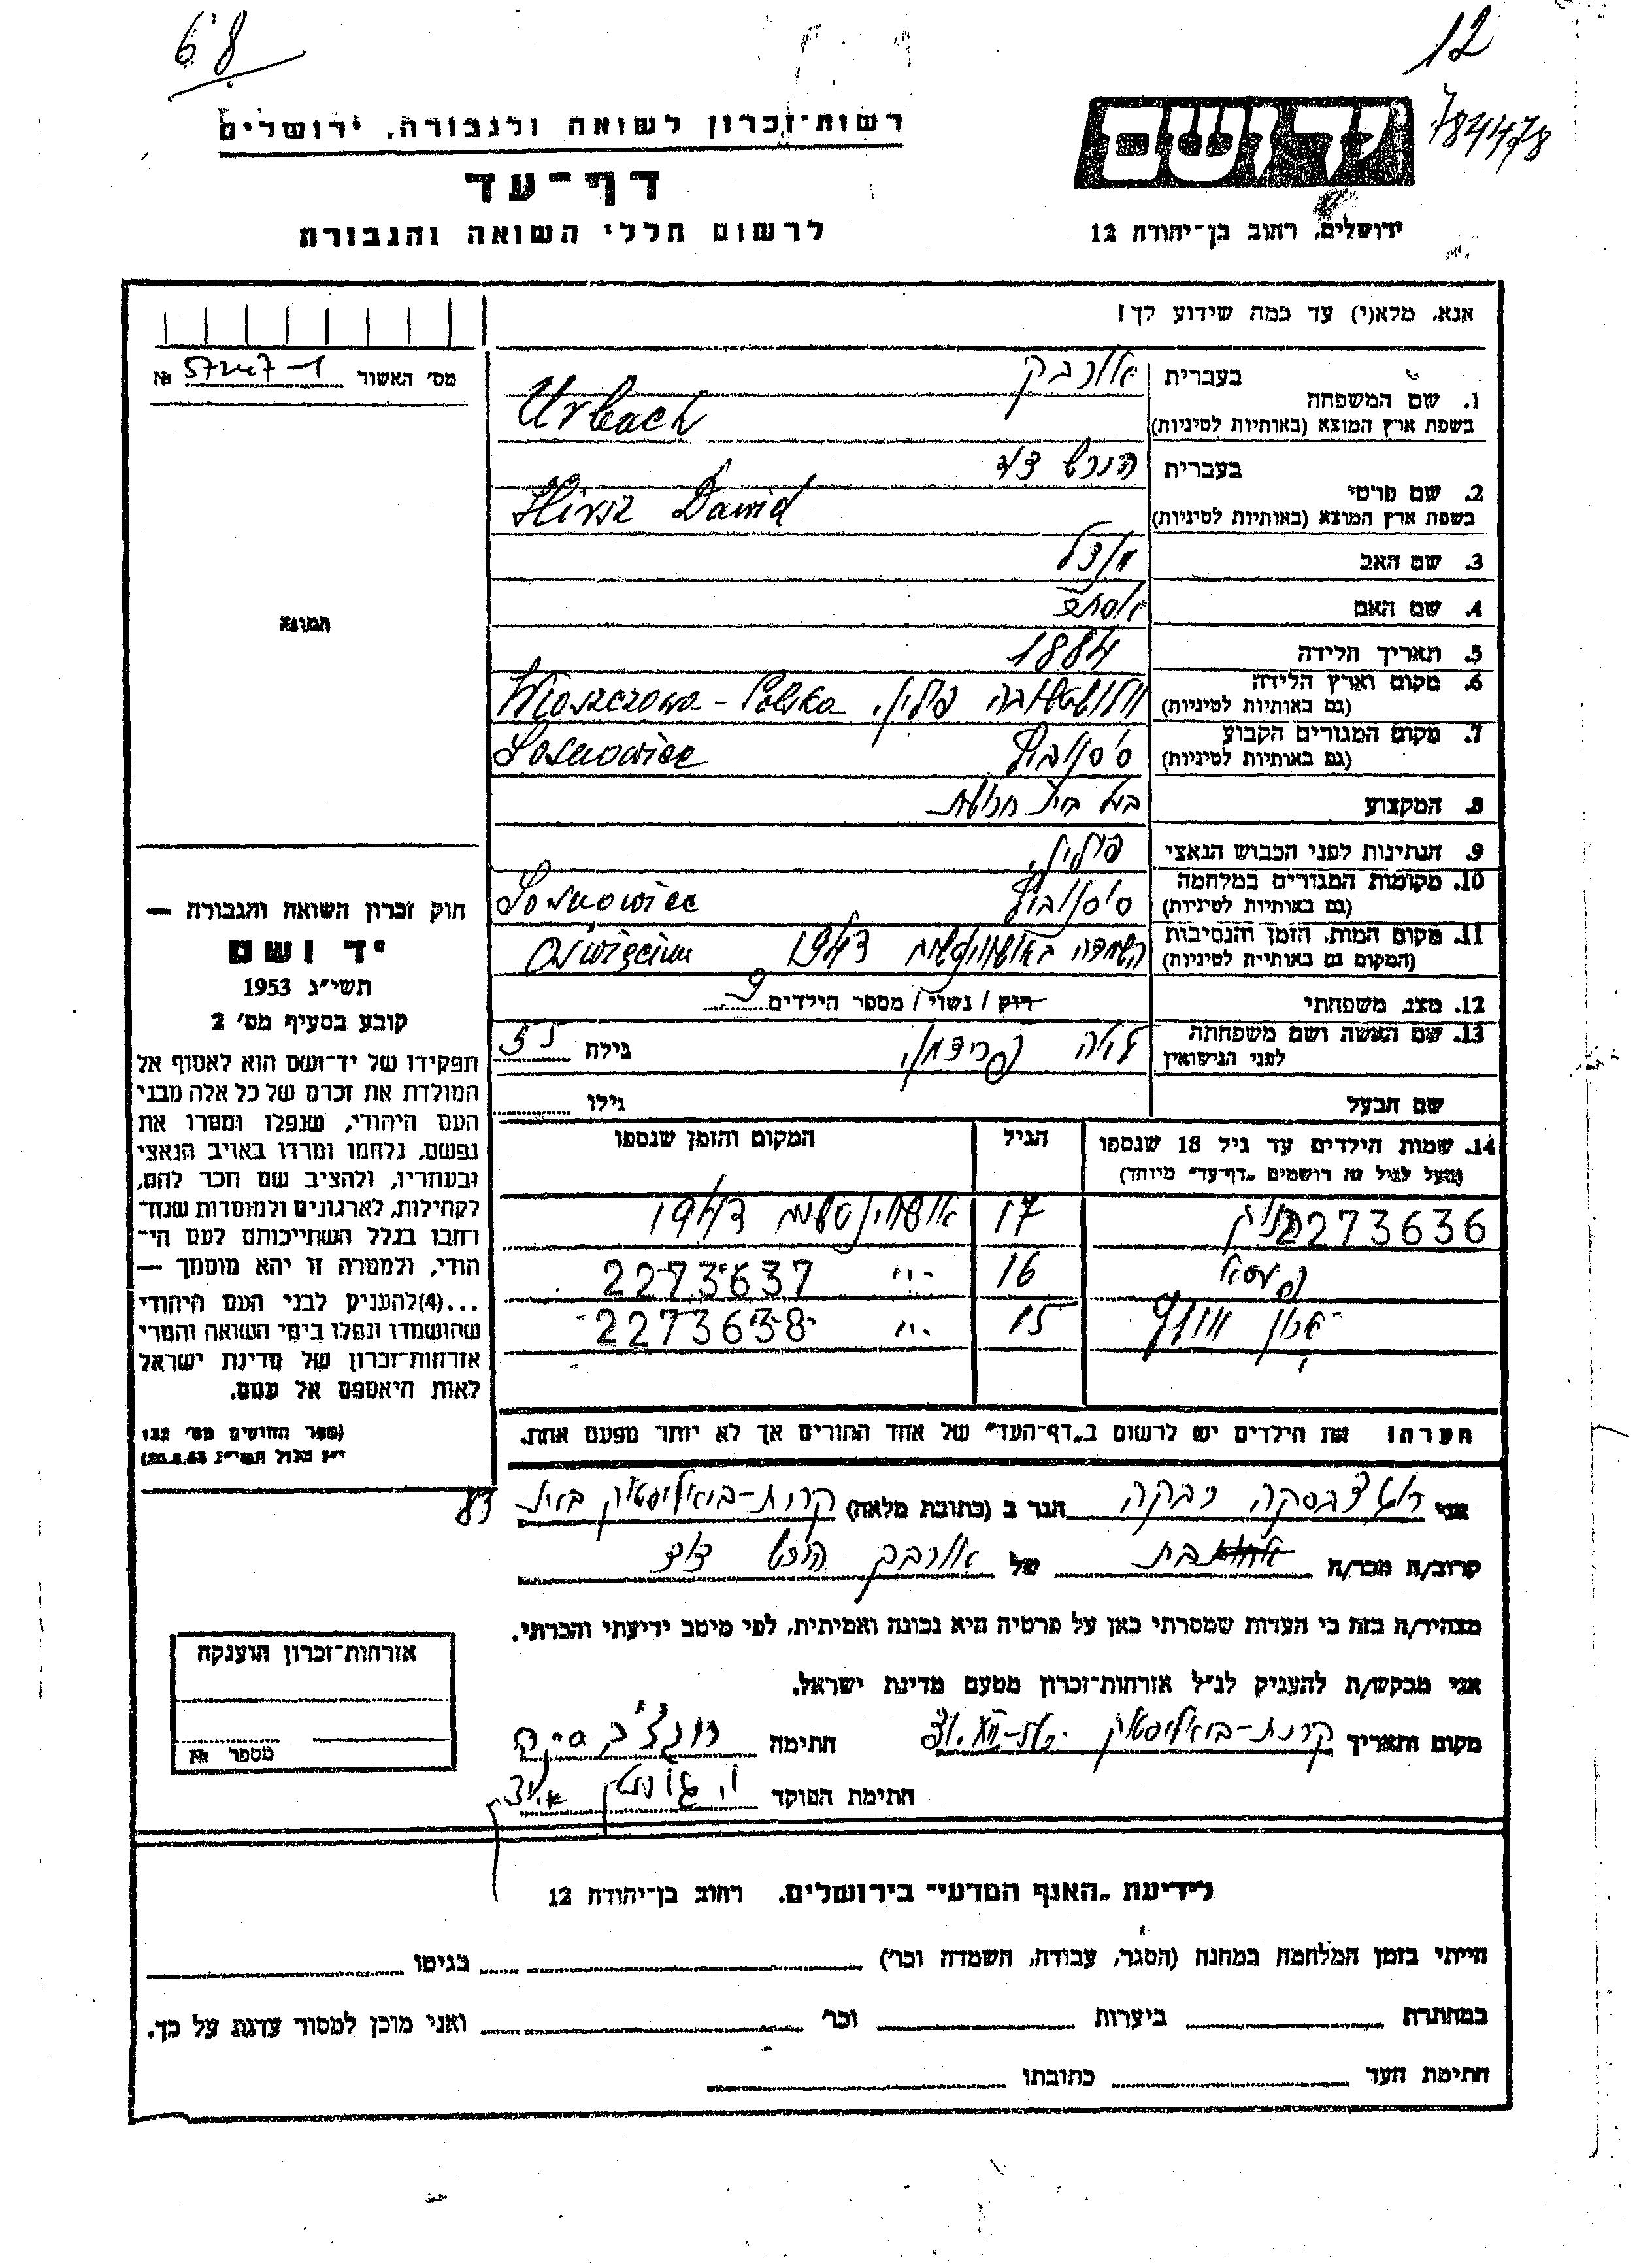 68
12
784478
רשות־זכרון לשואה ולגבורה, ירושלים
דף־עד
לרשום חללי השואה והגבורה
יד ושם
ירושלים, רחוב בן־יהודה 12
אנא, מלא(י) עד כמה שידוע לך!
מס׳ האשור №
1. שם המשפחה
בעברית אורבך
בשפת ארץ המוצא (באותיות לטיניות) Urbach
2. שם פרטי
בעברית הירש דוד
בשפת ארץ המוצא (באותיות לטיניות) Hirsz Dawid
3. שם האב מנדל
4. שם האם אסתר
5. תאריך הלידה 1884
6. מקום וארץ הלידה
(גם באותיות לטיניות) פולין, Włoszczowa - Polska
7. מקום המגורים הקבוע
(גם באותיות לטיניות) סוסנוביץ Sosnowiec
8. המקצוע בעל בית חרושת
9. הנתינות לפני הכבוש הנאצי פולין
10. מקומות המגורים במלחמה
(גם באותיות לטיניות) סוסנוביץ Sosnowiec
11. מקום המות, הזמן והנסיבות
(המקום גם באותיות לטיניות) 1943 Oświęcim
12. מצב משפחתי רוק / נשוי / מספר הילדים 9
13. שם האשה ושם משפחתה
לפני הנישואין פרידמן גילה 55
שם הבעל גילו
14. שמות הילדים עד גיל 18 שנספו הגיל המקום והזמן שנספו
(מעל לגיל זה רושמים „דף־עד" מיוחד)
2273636 17 1943
16 2273637
15 2273638
הערה! את הילדים יש לרשום ב„דף־העד" של אחד ההורים אך לא יותר מפעם אחת.
תמונה
חוק זכרון השואה והגבורה —
יד ושם
תשי״ג 1953
קובע בסעיף מס׳ 2
תפקידו של יד־ושם הוא לאסוף אל
המולדת את זכרם של כל אלה מבני
העם היהודי, שנפלו ומסרו את
נפשם, נלחמו ומרדו באויב הנאצי
ובעוזריו, ולהציב שם וזכר להם,
לקהילות, לארגונים ולמוסדות שנח־
רבו בגלל השתייכותם לעם הי־
הודי, ולמטרה זו יהא מוסמך —
...(4)להעניק לבני העם היהודי
שהושמדו ונפלו בימי השואה והמרי
אזרחות־זכרון של מדינת ישראל
לאות היאספם אל עמם.
(ספר החוקים מס׳ 132
י״ז אלול תשי״ג 28.8.53)
אני רבקה הגר ב (כתובת מלאה) קרית-ביאליסטוק בית 83
קרוב/ה מכר/ה בת של אורבך הירש דוד
מצהיר/ה בזה כי העדות שמסרתי כאן על פרטיה היא נכונה ואמיתית, לפי מיטב ידיעתי והכרתי.
אני מבקש/ת להעניק לנ״ל אזרחות־זכרון מטעם מדינת ישראל.
מקום ותאריך קרית-ביאליסטוק חתימה
חתימת הפוקד
אזרחות־זכרון הוענקה
מספר №
לידיעת „האגף המדעי" בירושלים, רחוב בן־יהודה 12
הייתי בזמן המלחמה במחנה (הסגר, עבודה, השמדה וכר׳) בגיטו
במחתרת ביערות וכר׳ ואני מוכן למסור עדות על כך.
חתימת העד כתובתו